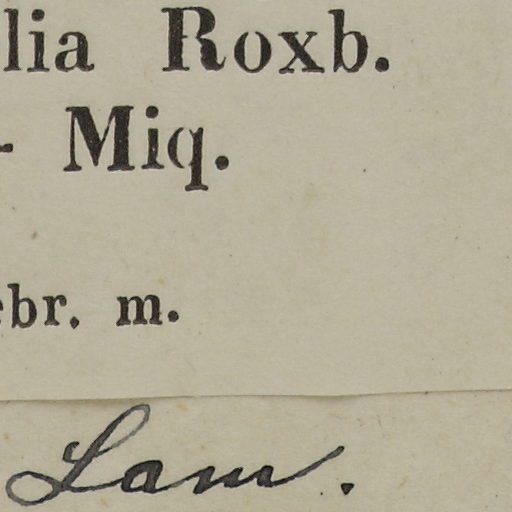 lia Roxb.
- Miq.
ebr. m.
Lam.